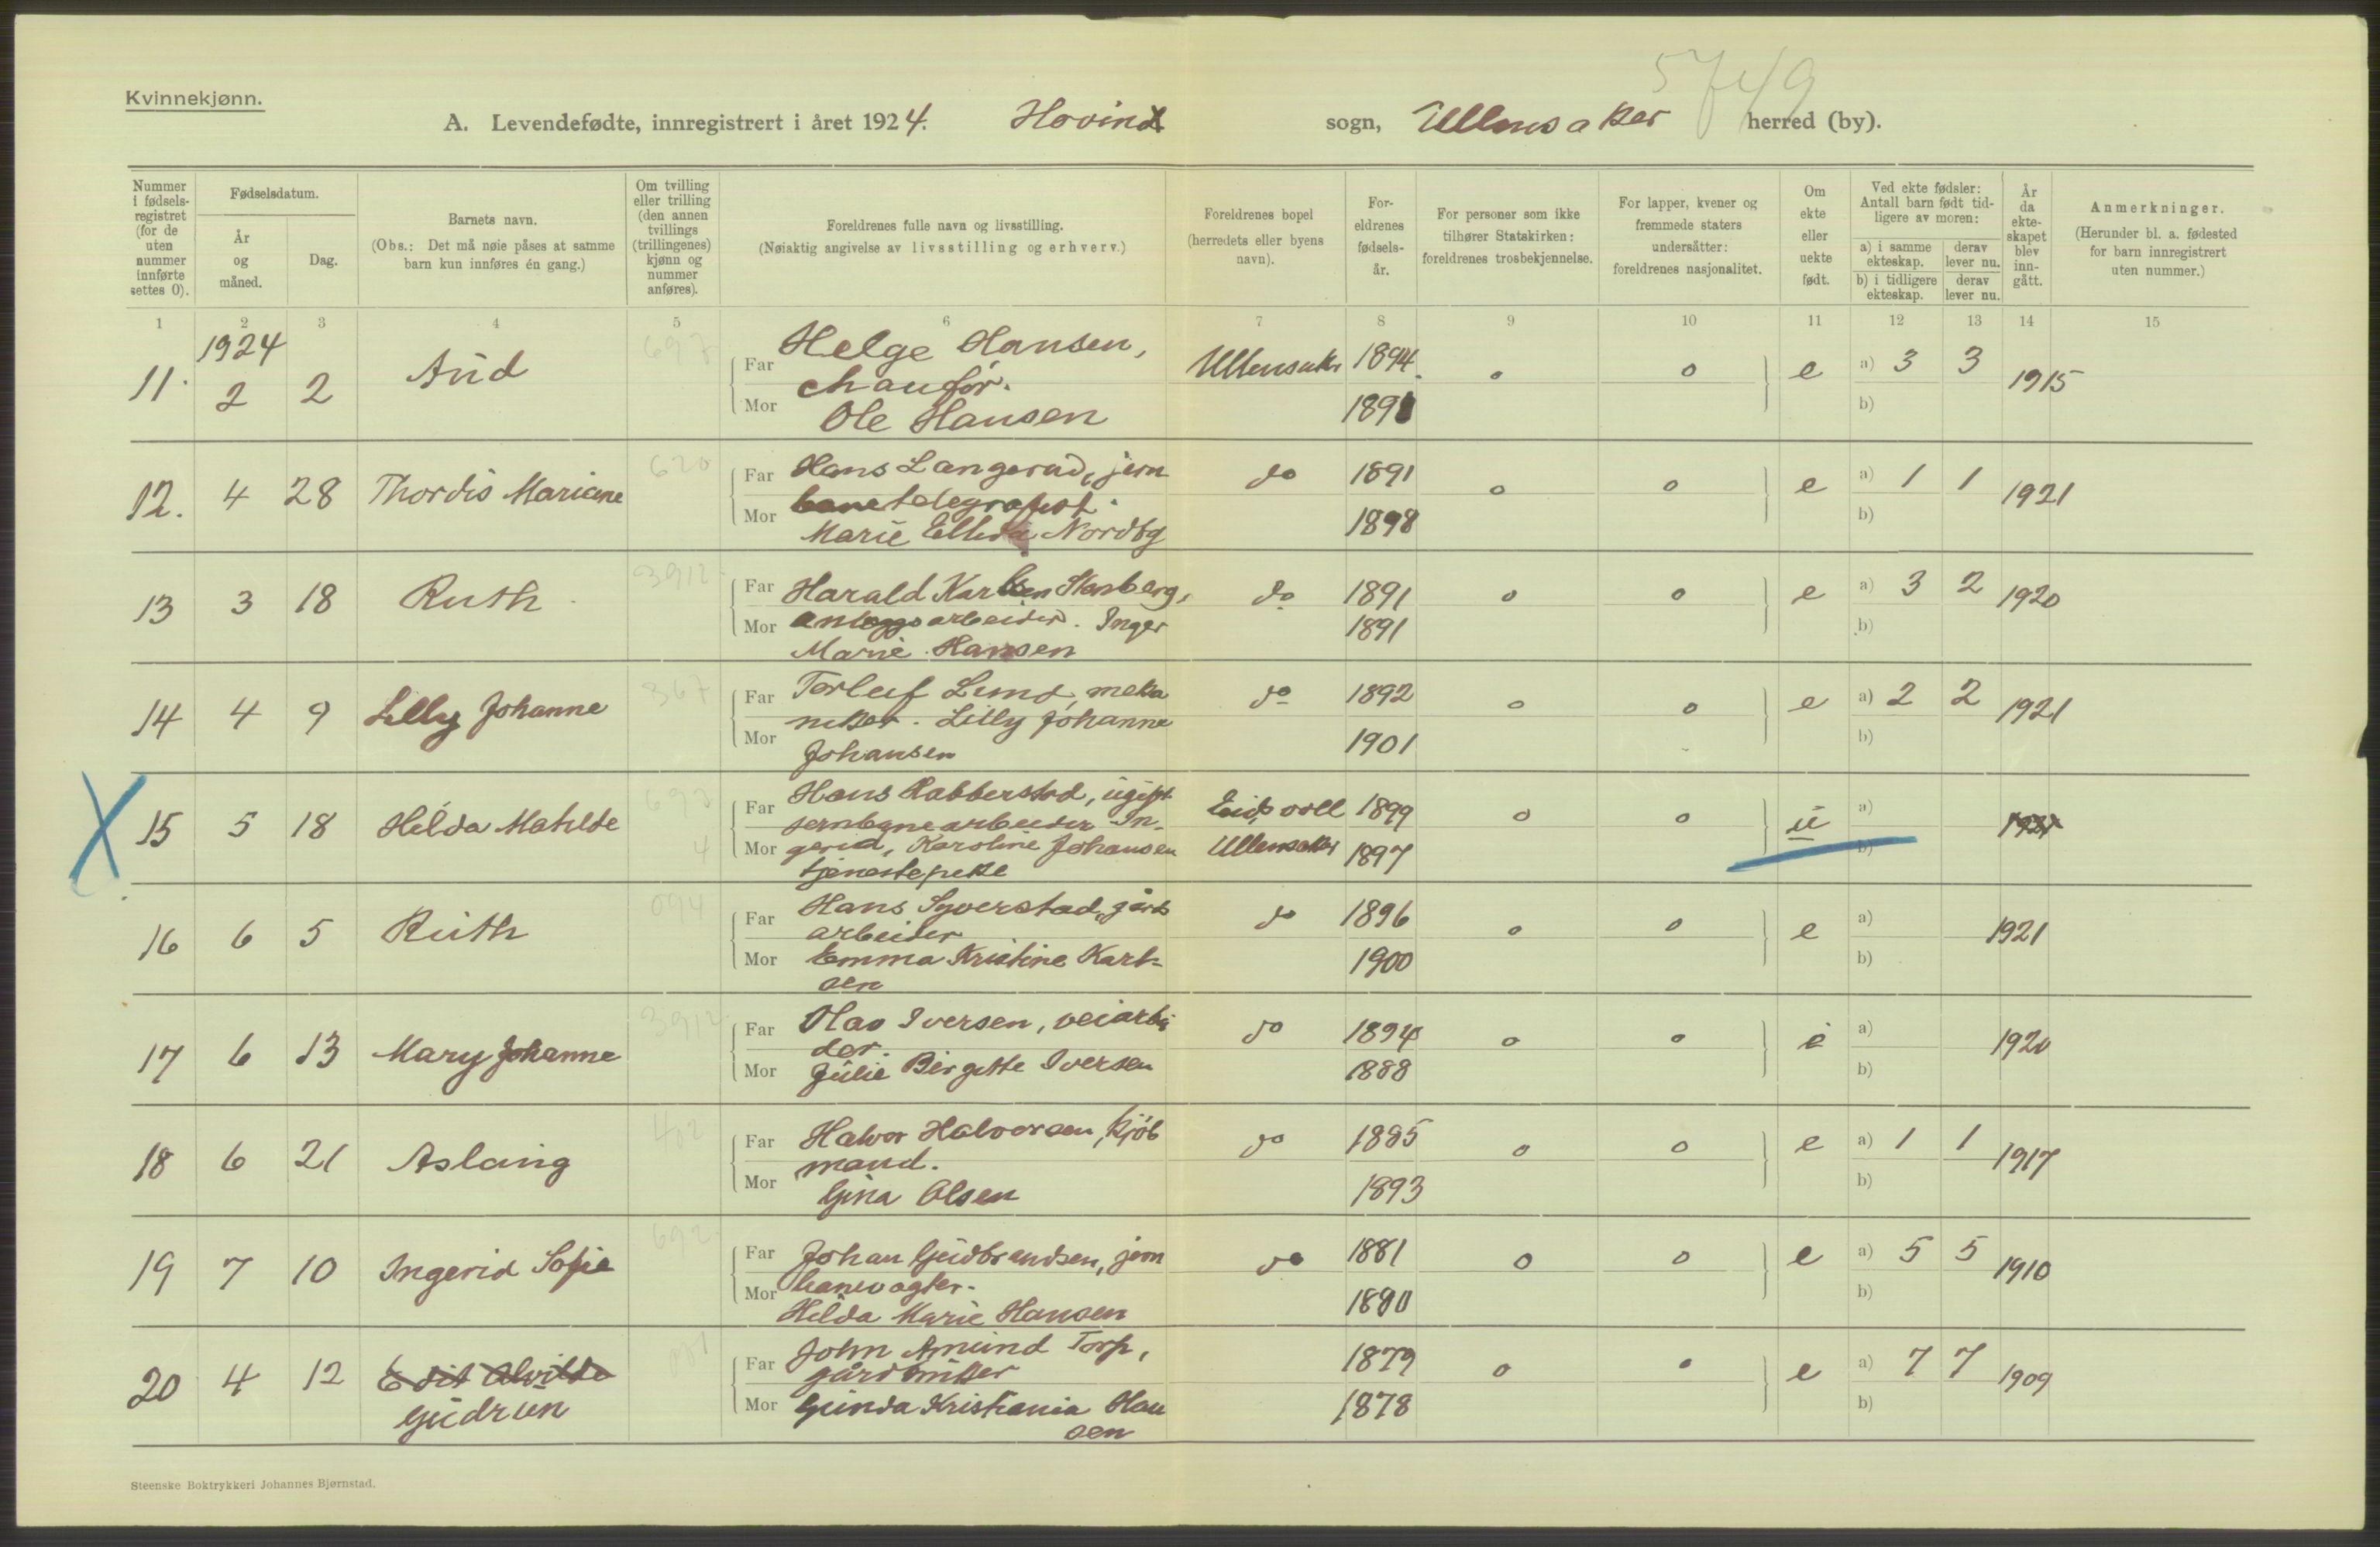 Kvinnekjønn.
5749
A. Levendefødte, innregistrert i året 1924. Hovin sogn, Ullensaker herred (by).
Nummer i fødselsregistret (for de uten nummer innførte settes 0).
Fødselsdatum.
År og måned.
Dag.
Barnets navn.
(Obs.: Det må nøie påses at samme barn kun innføres én gang.)
Om tvilling eller trilling (den annen tvillings (trillingenes) kjønn og nummer anføres).
Foreldrenes fulle navn og livsstilling.
(Nøiaktig angivelse av livsstilling og erhverv.)
Foreldrenes bopel (herredets eller byens navn).
Foreldrenes fødselsår.
For personer som ikke tilhører Statskirken: foreldrenes trosbekjennelse.
For lapper, kvener og fremmede staters undersåtter: foreldrenes nasjonalitet.
Om ekte eller uekte født.
Ved ekte fødsler: Antall barn født tidligere av moren:
a) i samme ekteskap. derav lever nu.
b) i tidligere ekteskap. derav lever nu.
År da ekteskapet blev inngått.
Anmerkninger.
(Herunder bl. a. fødested for barn innregistrert uten nummer.)
1 2 3 4 5 6 7 8 9 10 11 12 13 14 15
1924
11. 2 2 Aud
Far Helge Hansen, Ullensaker 1894 0 0 e a) 3 3 1915
chauffør.
Mor Ole Hansen 1891 b)
12. 4 28 Thordis Mariane 620
Far Hans Langerud, jern do 1891 0 0 e a) 1 1 1921
banetelegrafist.
Mor Marie Ellida Nordbg 1898 b)
13 3 18 Ruth 3912
Far Harald Karlsen Stenberg, do 1891 0 0 e a) 3 2 1920
Mor anleggsarbeider. Inger 1891 b)
Marie Hansen
14 4 9 Lilly Johanne 367
Far Torleif Lund, meka do 1892 0 0 e a) 2 2 1921
Mor niker. Lilly Johanne 1901 b)
Johansen
15 5 18 Hilda Matilde
Far Hans Rabberstad, ugift Eidsvoll 1899 0 0 u a)
jernbanearbeider In-
Mor gerid, Karoline Johansen Ullensaker 1897 b)
tjenestepike
16 6 5 Ruth 094
Far Hans Syverstad, gårds do 1896 0 0 e a) 1921
arbeider
Mor Emma Kristine Karl- 1900 b)
sen
17 6 13 Mary Johanne 3912
Far Olav Iversen, veiarbei do 1894 0 0 e a) 1920
der.
Mor Julie Birgitte Iversen 1888 b)
18 6 21 Aslaug 402
Far Halvor Halvorsen, kjøb do 1885 0 0 e a) 1 1 1917
mand.
Mor Gina Olsen 1893 b)
19 7 10 Ingerid Sofie 692
Far Johan Gudbrandsen, jern do 1881 0 0 e a) 5 5 1910
Mor banevogter. 1890 b)
Hilda Marie Hansen
20 4 12 Edit Alvilde
Gudrun
Far John Amund Torp, 1879 0 0 e a) 7 7 1909
gårdbruker
Mor Gunda Kristiania Han 1878 b)
sen
Steenske Boktrykkeri Johannes Bjørnstad.